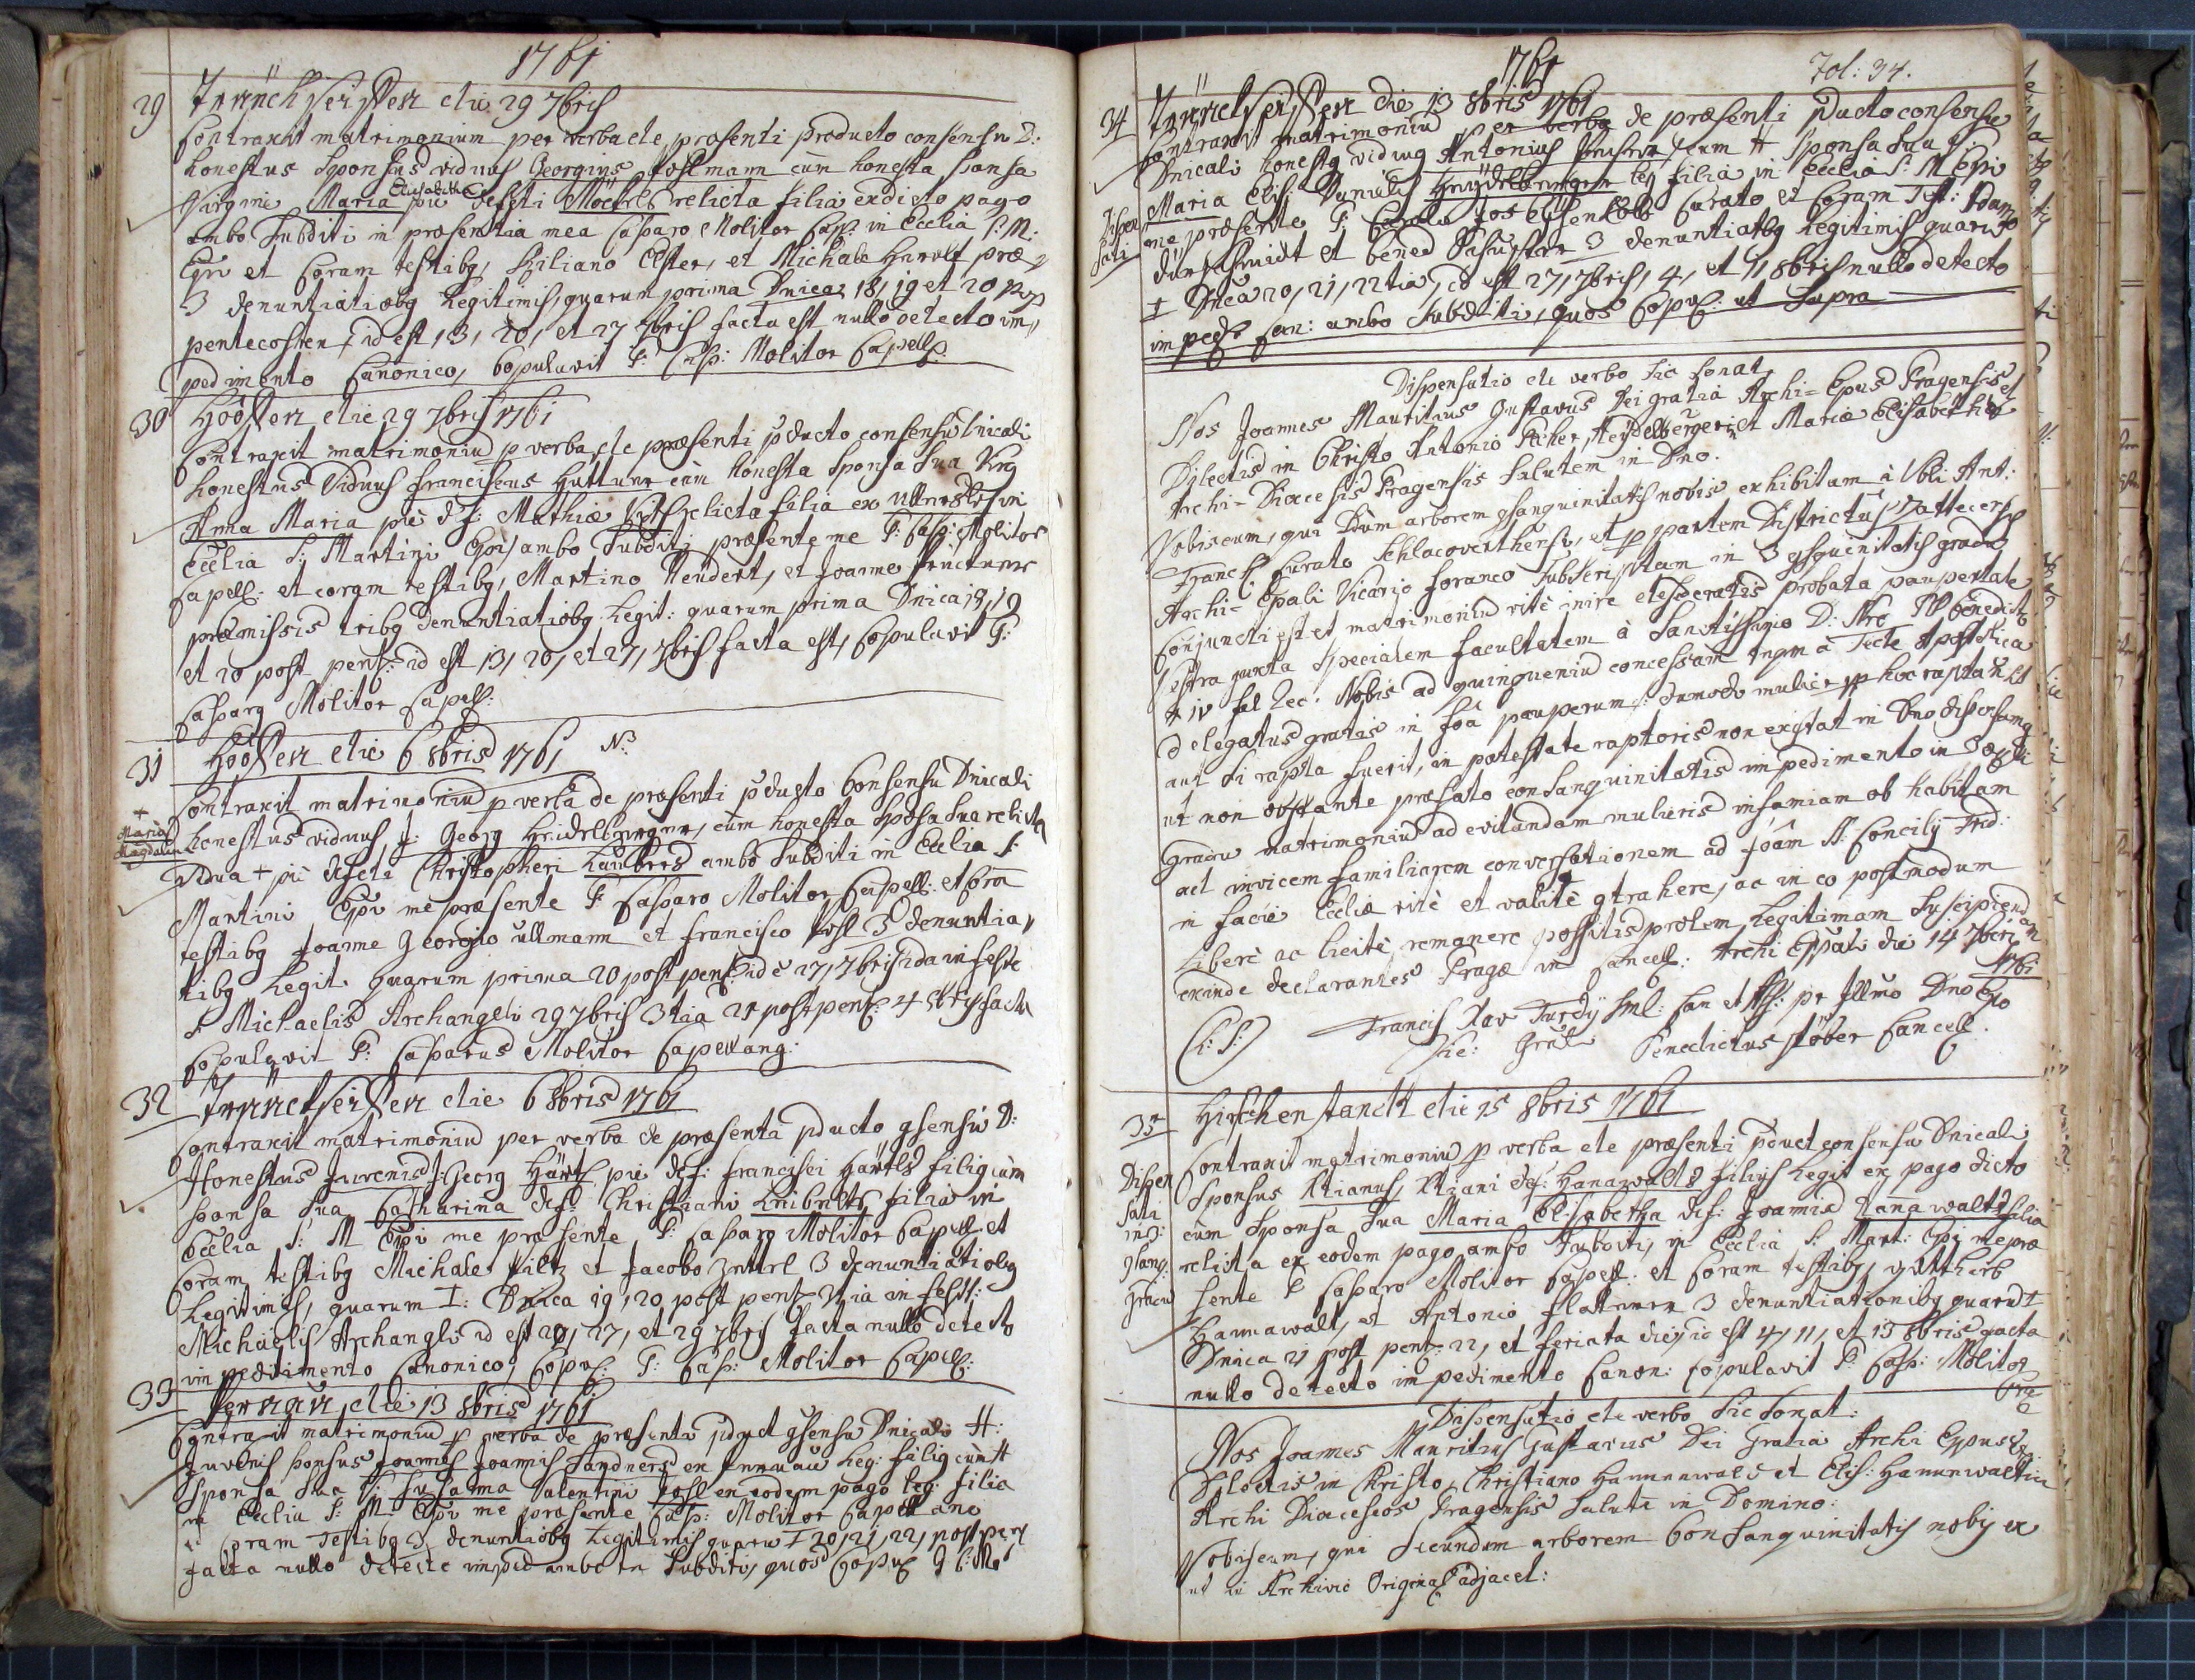 1761
29 Trünckseiffen die 29 7bris
Contraxit matrimonium per verba de praesenti producto consensu D:
honestus Sponsus viduus Georgius Poslmann cum honesta Sponsa
Virgine Maria Elisabetha pie defcti relicta filia ex dicto pago
ambo Subditi in praesentia mea Casparo Molitor Cap: in Ecclia S: M:
Epi et Coram testibg, Kiliano Elster, et Michale
3 denuntiatiobg Legitimis, quarum prima Dnica 18, 19 et 20 post
pentecosten, id est 13, 20, et 27 7bris facta est nullo detecto im,,
pedimento Canonico, Copulavit P: Casp: Molitor Capell:
30 die 29 7bris 1761
Contraxit matrimoniu p verba de praesenti pducto consensu Dnicali
honestus Viduus Franciscus Huttner cum honesta Sponsa Sua Virg
Anna Maria pie def: Mathiae relicta filia ex in
Ecclia S: Martini Epis ambo Subditi praesente me P: Casp: Molitor
Capell: et coram testibg, Martino et Joanne
praemissis tribg denuntiatiobg Legit: quarum prima Dnica 18, 19
et 20 post pent: id est 13, 20, et 27, 7bris facta est, Copulavit P:
Casparg Molitor Capell:
31 die 6 8bris 1761 N:
Contraxit matrimoniu p verba de praesenti pducto Consensu Dnicali
+ Maria Magdalena
honestus viduus J: Georg Heidelberger, cum honesta Sposa Sua relicta
Vidua + pie defcti Christopheri ambo Subditi in Ecclia S:
Martini Epi me praesente P: Casparo Molitor Capell: et Cora
testibg Joanne Georgio Ullmann et Francisco Posl 3 denuntia,,
tibg Legit. quarum prima 20 post pent: id e 27, 7bris 2da in festo
S Michaelis Archangeli 29 7bris 3tia 21 post pent: 4 8bris facta
Copulavit P: Casparus Molitor Capellang:
32 Trünckseiffen die 6 8bris 1761
Contraxit matrimoniu per verba de praesenti pducto gsensu D:
Honestus Juvenis J: Georg Härtl pie def: Francisci Härtls filig cum
sponsa Sua Catharina def: Christiani filia in
Ecclia S: M Epi me praesente P: Casparo Molitor Capell: et
Coram testibg Michale Piltz et Jacobo 3 denuntiatiobg
Legitimis, quarum I: Dnica 19, 20 post pent 3tia in festo:
Michaelis Archangli id est 20, 27, et 29 7bris facta nullo detecto
impedimento Canonico, Copul: P: Casp: Molitor Capell:
33 die 13 8bris 1761
Contraxit matrimoniu p verba de praesenti pduct gsensu Dnicali H:
Juvenis sponsus Joannes Joannis Sandners ex leg: filig cum H
Sponsa Sua V: Susanna Valentini Posl ex eodem pago leg: filia
in Ecclia S: M: Epi me praesente Casp: Molitor Capellano
et Coram Testibg 3 denuntiobg Legitimis quaru I 20, 21, 22, post pent
facta nullo detecto imped ambo Subditi, quos Copul P C: M:
1761 Fol: 34.
34 Trünckseiffen die 13 8bris 1761
Contraxit matrimoniu per verba de praesenti pducto consensu
Dnicali honestg viduug Antonius cum H Sponsa Sua V:
Maria Elis: Danielis Heydelberger leg filia in Ecclia S: M Epi
Dispen sati
me praesente P: Carolo Jos Curato et Coram Test: Adam
et Bened 3 denuntiatbg Legitimis quaru
I Dnica 20, 21, 22 tia, id est 27, 7bris, 4, et 11, 8bris nullo detecto
imped: Can: ambo Subditi, quos Copul: ut Supra
Dispensatio de verbo Sic sonat,
Nos Joannes Mauritius Gustavus Dei gratia Archi-Epus Pragensis
Dilectis in Christo Antonio Heydelberger et Maria Elisabetha
Archi-Dioecesis Pragensis Salutem in Dno.
Vobiscum, qui Sdum arborem gsanguinitatis nobis exhibitam à Vbli Ant:
Franc: Curato Schlacoverthensi, et p partem Districtus
Archi-Epali Vicario foraneo Subscriptam in 3 gsguinitatis gradu
Conjuncti estis et matrimoniu rite inire desideratis probata paupertate
Vestra juxta Specialem facultatem à Sanctissimo D: Nro PP Benedicto
XIV fel: rec: Nobis ad quinqueniu concessam tnqm à Sede Apostolica
delegatus gratis in foa pauperum: dumodo mulier p hoc rapta n sit
aut si rapta fuerit, in potestate raptoris non existat in Dno dispensamg
ut non obstante praefato consanguinitatis impedimento in 3 aequali
Gradu matrimoniu ad evitandam mulieris infamiam ob habitam
ad invicem familiarem conversationem ad foam S. Concilij Trid:
in facie Ecclae rite et valide gtrahere, ac in eo postmodum
Libere ac licite remanere possitis prolem Legitimam Suscipiendam
exinde declarantes Pragae in Cancell: Archi Eppali die 14 7bris
1761
(L: S:) Francis Xav Turdy Can et pr Illmo Dno Epo
Vic: Gral Benedictus Stöber Cancell.
35 Hirschenstandt die 15 8bris 1761
Contraxit matrimoniu p verba de praesenti pduct consensu Dnicali
Dispen sati in 3: gsang: gradu
Sponsus Xtianus, Xtiani def: Hanawalts filius Legit ex pago dicto
cum Sponsa Sua Maria Elisabetha def: Joannis Hanawalts filia
relicta ex eodem pago ambo Subditi, in Ecclia S: Mart: Epi me prae
sente P Casparo Molitor Capell: et Coram testibg,
Hannawalt, et Antonio 3 denuntiationibg quaru I
Dnica 21 post pent: 22, et feriata die, id est 4, 11, et 15 8bris facta
nullo detecto impedimento Canon: Copulavit P: Casp: Molitor
Dispensatio de verbo Sic Sonat:
Nos Joannes Mauritius Gustavus Dei Gratia Archi Eppus
Dilectis in Christo, Christiano Hannawald et Elis: Hannawaltin
Archi Dioeceseos Pragensis Salute in Domino:
Vobiscum, qui Secundum arborem Consanguinitatis nobis ex
ut in Archivio Original adjacet: